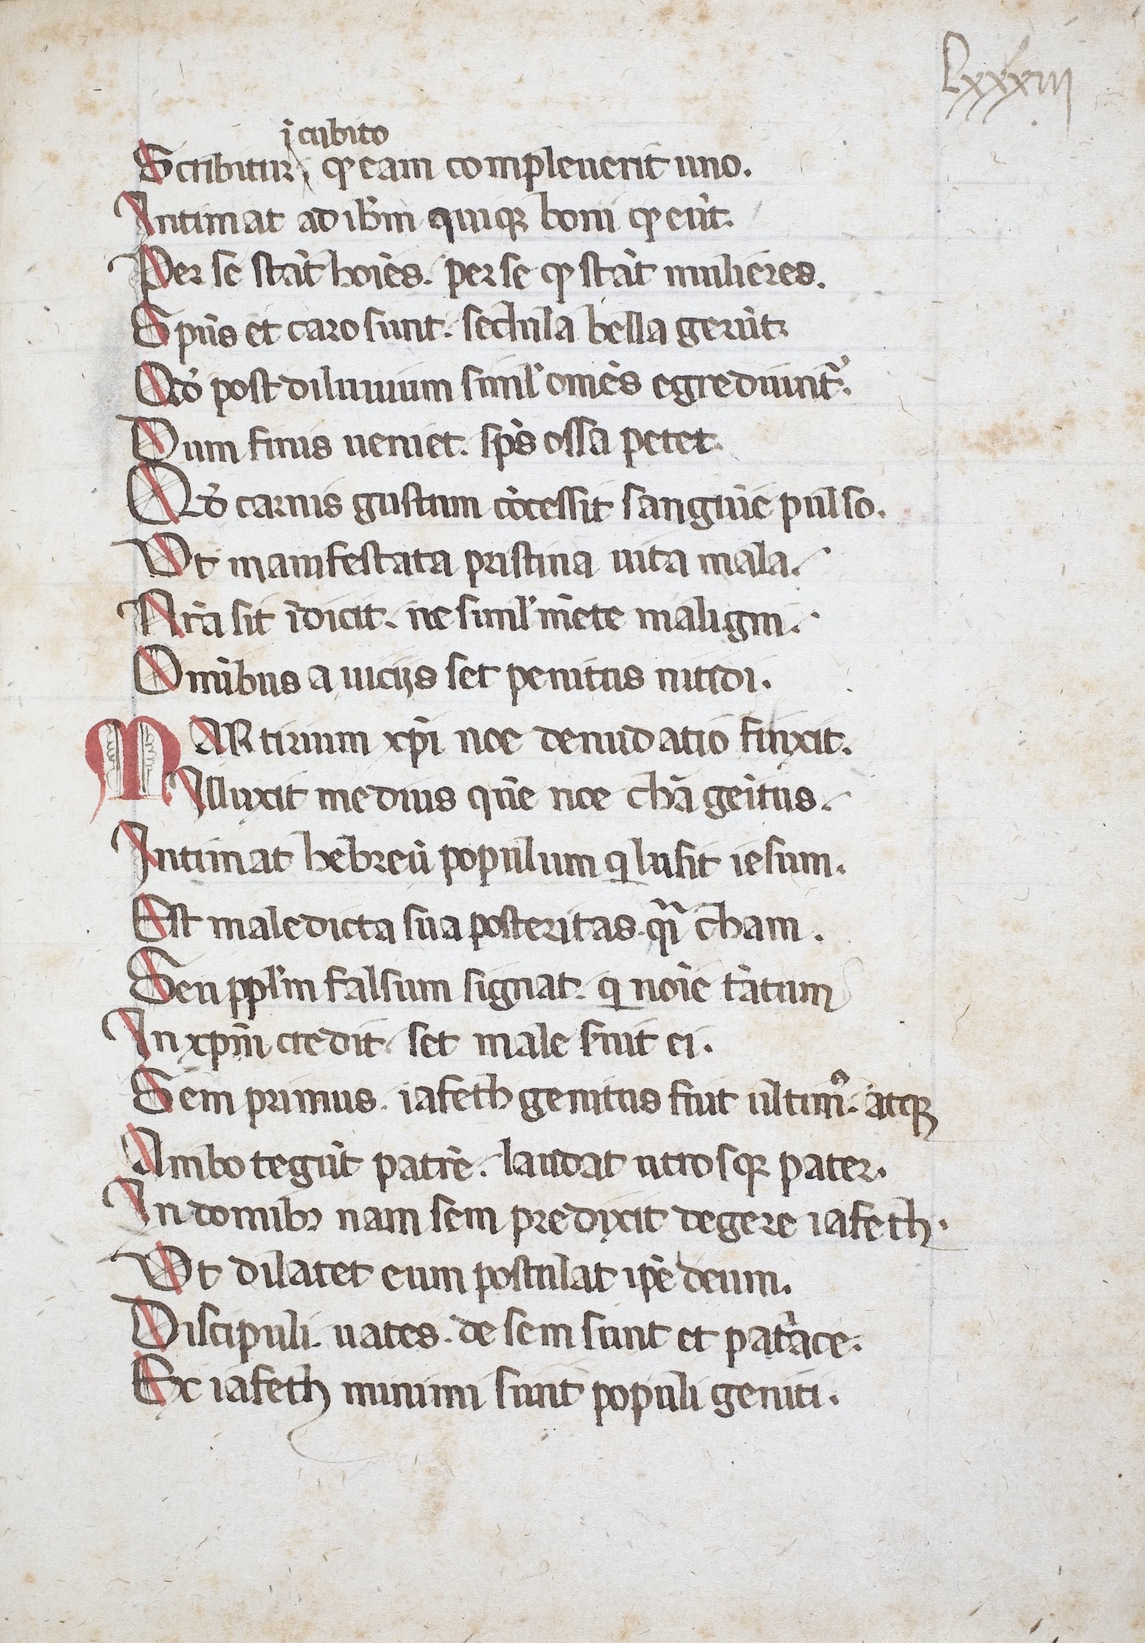 Lxxxiii
ī cubito
Scribitur, ꝙ eam compleuerit uno.
Intimat ad ihr̄m quiqꝫ boni ꝙ eūt.
Per se stāt hoīes. per se ꝙ stāt mulieres.
Spūs et caro sunt. sedula bella gerūt.
Qđo post diluuium siml̓ omēs egrediunt᷑.
Dum finis ueniet. sps̄ ossa petet.
Qđo carnis gustum cōcessit sanguīe pulso.
Vt manifestata pristina uita mala.
Arā sit īdicit. ne siml̓ mēte maligni.
Omībus a uicijs set penitus nitidi.
MARtirium xp̄i noe denudatio finxit.
Illuxit medius quē noe chā geītus.
Intimat hebreū populum qui lusit iesum.
Est maledicta sua posteritas. qȓi cham.
Seu ppl̓m falsum signat. qui noīe tātum
In xp̄m credit. set male fuit ei.
Sem primus. iafeth genitus fuit ultimꝰ. atqꝫ
Ambo tegūt patrē. laudat utrosqꝫ pater.
In domibꝫ nam sem predixit degere iafeth.
Vt dilatet eum postulat ip̄e deum.
Discipuli. uates. de sem sunt et pat̓ace.
Ex iafeth minimi sunt populi geniti.